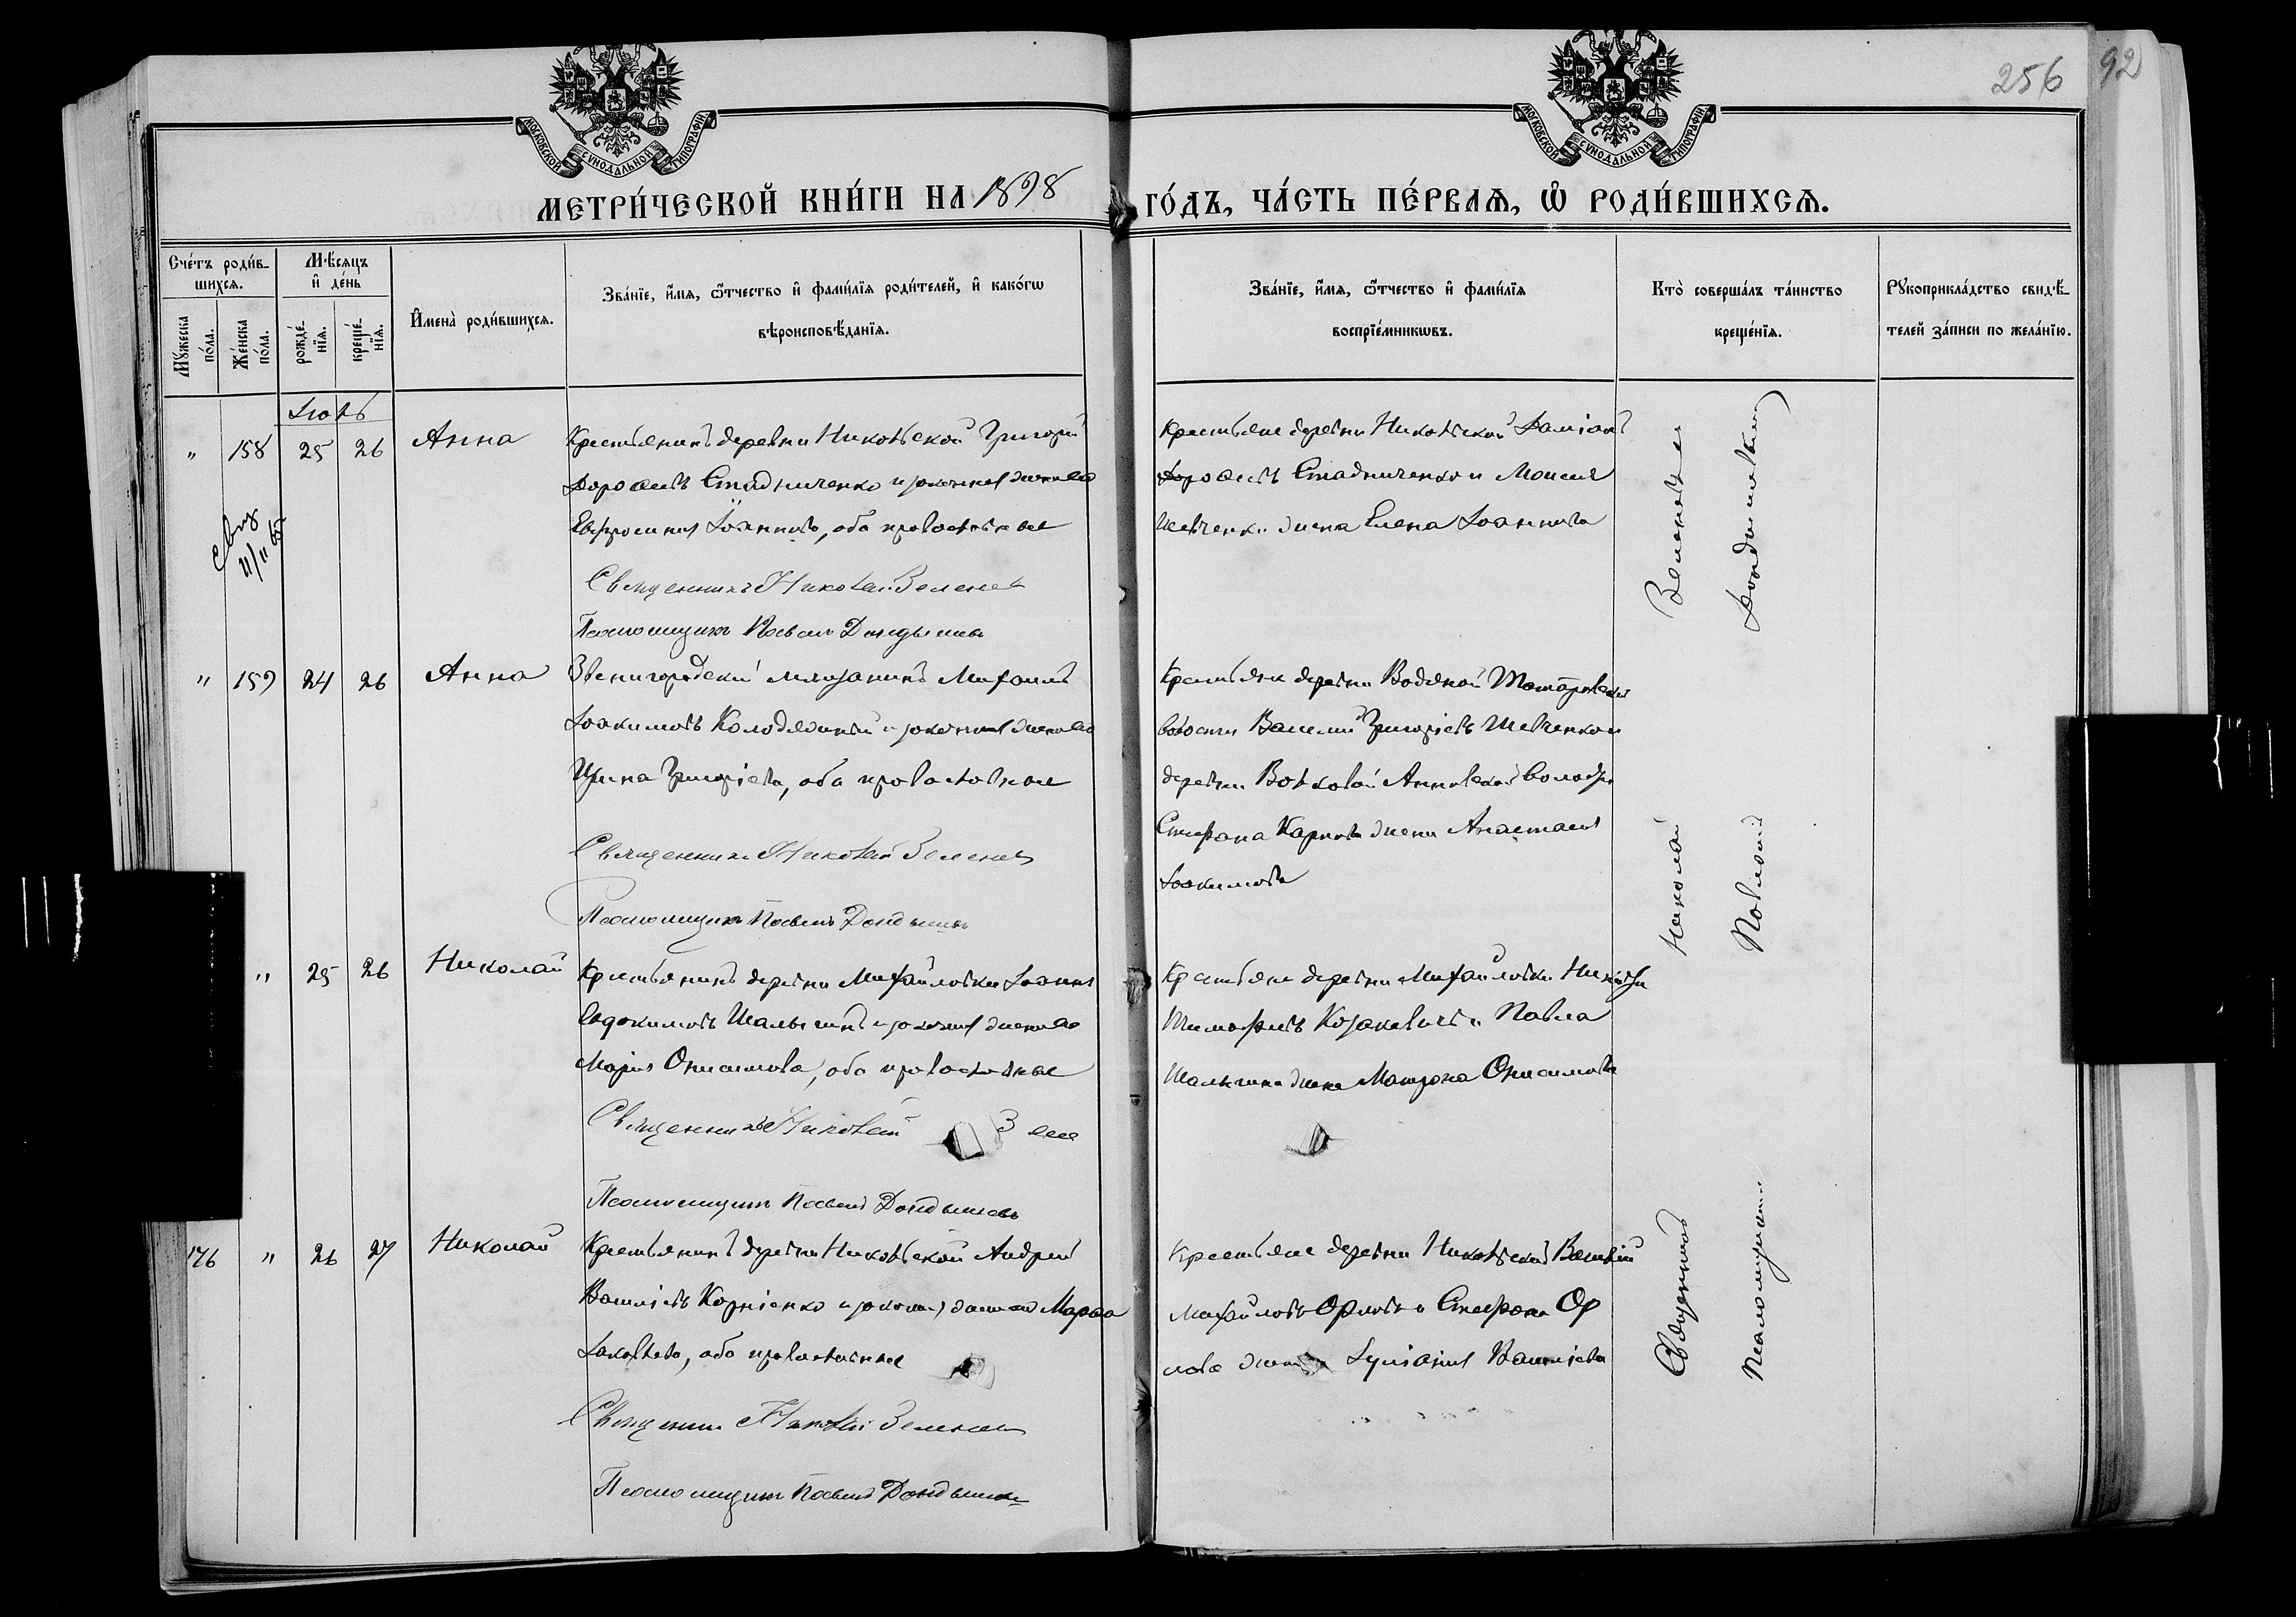 МОСКОВСКОЙ СѴНОДАЛЬНОЙ ТИПОГРАФІИ
МОСКОВСКОЙ СѴНОДАЛЬНОЙ ТИПОГРАФІИ
256 92
МЕТРИ́ЧЕСКОЙ КНИ́ГИ НА 1898 ГО́ДЪ, ЧА́СТЬ ПЕ́РВАѦ, Ѡ҆ РОДИ́ВШИХСѦ.
Сче́тъ роди́в-
шихсѧ.
Мꙋ́жеска по́ла.
Же́нска по́ла.
Мѣ́сѧцъ
и҆ де́нь
рожде́-
нїѧ.
креще́-
нїѧ.
И҆мена̀ роди́вшихсѧ.
Зва́нїе, и҆́мѧ, ѻ҆́тчество и҆ фами́лїѧ роди́телей, и҆ како́гѡ
вѣроисповѣ́данїѧ.
Зва́нїе, и҆́мѧ, ѻ҆́тчество и҆ фами́лїѧ
воспрїе́мникѡвъ.
Кто̀ соверша́лъ та́инство
креще́нїѧ.
Рꙋкоприкла́дство свидѣ́-
телей за́писи по жела́нїю.
Іюль
" 158 25 26 Анна
Крестьянинъ деревни Никольской Григорій
Дороѳеевъ Стадниченко и законная жена его
Евфросинія Іоаннова, оба православные
Священникъ Николай Зеленев
Псаломщикъ Павелъ
Крестьяне деревни Никольской Даміанъ
Дороѳеевъ Стадниченко и Моисея
Шевченки жена Елена Іоаннова
11/11
" 159 24 26 Анна
Звенигородскій мѣщанинъ Михаилъ
Іоакимовъ Колодяжный и законная жена его
Ирина Григоріева, оба православные
Священникъ Николай Зеленевъ
Псаломщикъ Павелъ
Крестьяне деревни Водяной
волости Василій Григоріевъ Шевченко и
деревни Волковой Анновской волости
Стефана Карпова жена Анастасія
Іоакимова
" 25 26 Николай
Крестьянинъ деревни Михайловки Іоаннъ
Евдокимовъ Шалыгинъ и законная жена его
Марія Онисимова, оба православные
Священникъ Николай Зеле
Псаломщикъ Павелъ
Крестьяне деревни Михайловки
Тимофеевъ Козакевичъ и Павла
Шалыгина жена Матрона Онисимова
176 " 26 27 Николай
Крестьянинъ деревни Никольской Андрей
Василіевъ Корніенко и законная жена его Марѳа
Іаковлева, оба православные
Священникъ Николай Зеленев
Псаломщикъ Павелъ
Крестьяне деревни Никольской Василій
Михайловъ Орловъ и Стефана Ор
лова жена Іуліанія Василіева
Священникъ Николай Зеленев
Псаломщикъ Павелъ